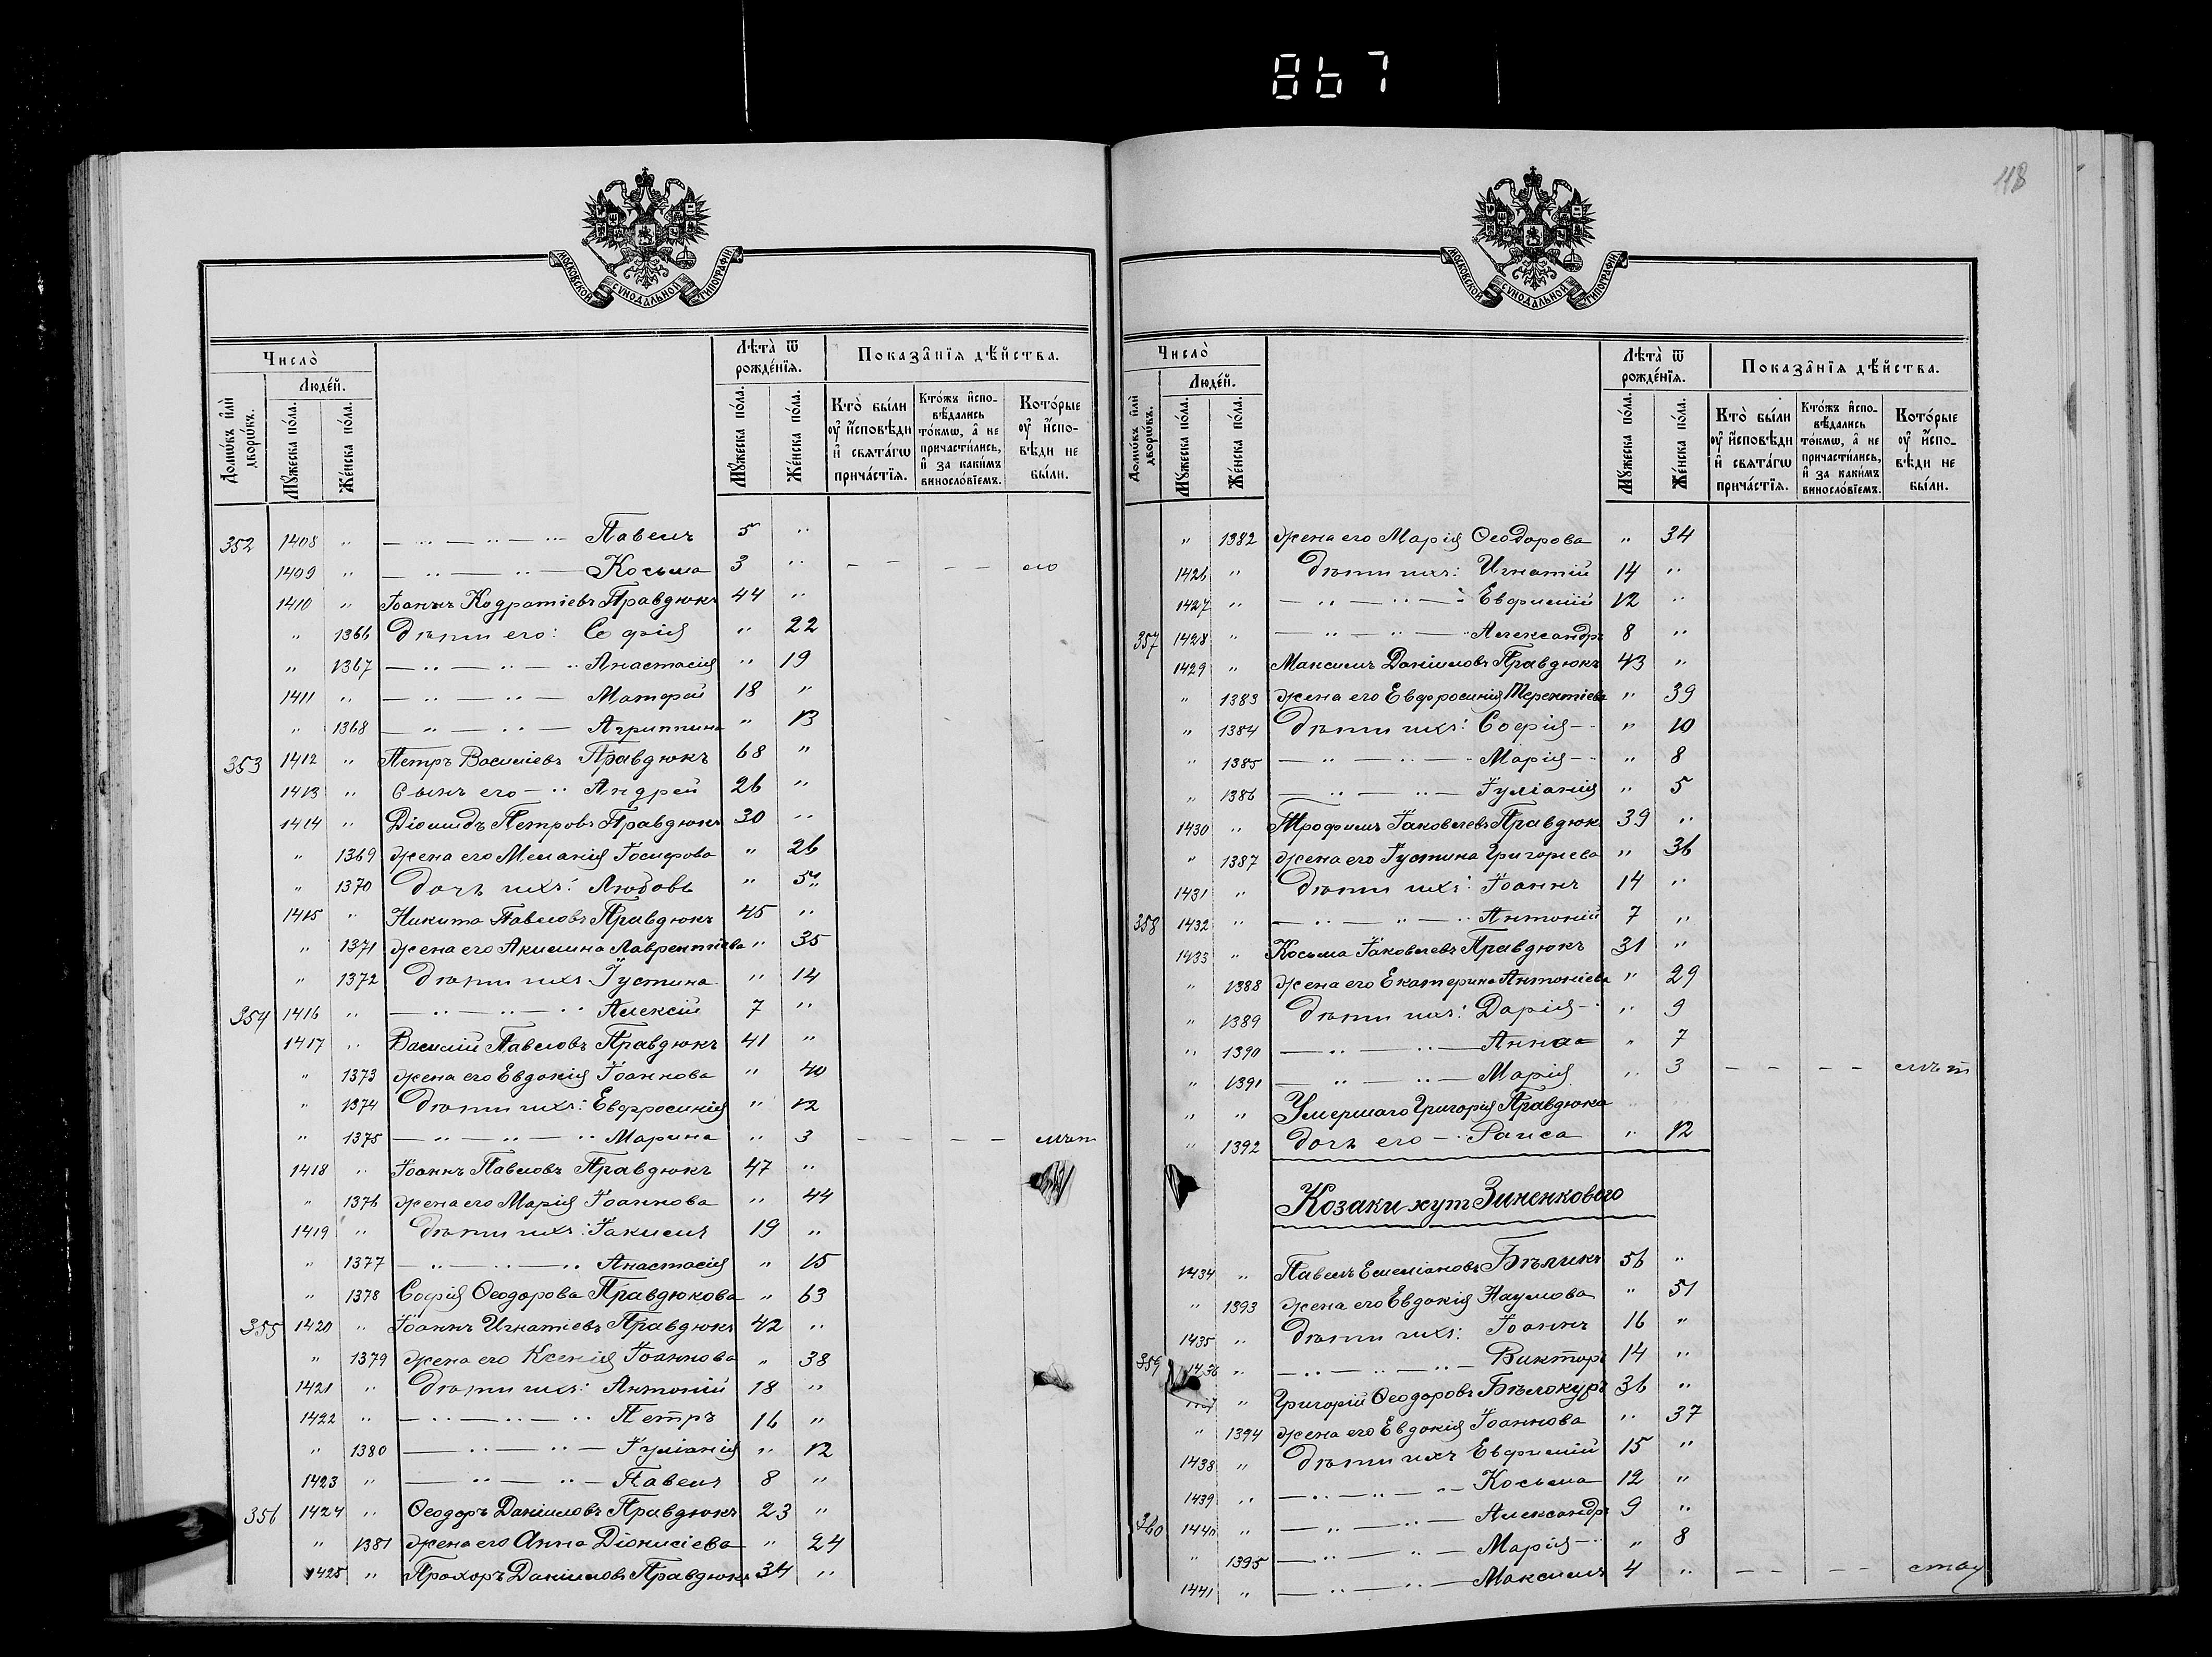 867
48
МОСКОВСКОЙ СѴНОДАЛЬНОЙ ТИПОГРАФІИ
Число̀
Людéй.
Домѡ́въ и҆лѝ дворѡ́въ.
Мꙋ́жеска по́ла.
Же́нска по́ла.
Лѣта̀ ѿ рожде́нїѧ.
Мꙋ́жеска по́ла.
Же́нска по́ла.
Показа̂нїѧ дѣ́йства.
Кто̀ бы́ли ᲂу҆ и҆́сповѣди и҆ свѧта́гѡ прича́стїѧ.
Кто́жъ и҆споⷡѣ́дались то́кмѡ, а҆ не причасти́лись, и҆ за каки́мъ винослові́емъ.
Кото́рые ᲂу҆ и҆́споⷡѣди не бы́ли.
352 1408 " — " — " — Павелъ 5 "
1409 " — " — " — Косьма 3 " - - - -
1410 " Іоаннъ Кодратіевъ Правдюкъ 44 "
" 1366 Дѣти его: Софія " 22
" 1367 — " — " — " Анастасія " 19
1411 " — " — " — Матфей 18 "
" 1368 — " — " — Агриппина " 13
353 1412 " Петръ Василіевъ Правдюкъ 68 "
1413 " Сынъ его — " Андрей 26 "
1414 " Діомидъ Петровъ Правдюкъ 30 "
" 1369 Жена его Меланія Іосифова " 26
" 1370 Дочь ихъ: Любовь " 5
1415 " Никита Павловъ Правдюкъ 45 "
" 1371 Жена его Акилина Лаврентіева " 35
" 1372 Дѣти ихъ Іустина " 14
354 1416 " — " — " — " Алексій 7 "
1417 " Василій Павловъ Правдюкъ 41 "
" 1373 Жена его Евдокія Іоаннова " 40
" 1374 Дѣти ихъ: Евфросинія " 12
" 1375 — " — " — " Марина " 3 - - - - мѣт
1418 " Іоаннъ Павловъ Правдюкъ 47 "
" 1376 Жена его Марія Іоаннова " 44
1419 " Дѣти ихъ: Іакимъ 19 "
" 1377 — " — " — " Анастасія " 15
" 1378 Софія Ѳеодорова Правдюкова " 63
355 1420 " Іоаннъ Игнатіевъ Правдюкъ 42 "
" 1379 Жена его Ксенія Іоаннова " 38
1421 " Дѣти ихъ: Антоній 18 "
1422 " — " — " — " Петръ 16 "
" 1380 — " — " — Іуліанія " 12
1423 " — " — " — Павелъ 8 "
356 1424 " Ѳеодоръ Даніиловъ Правдюкъ 23 "
" 1381 Жена его Анна Діонисіева " 24
1425 " Прохоръ Даніиловъ Правдюкъ 34 "
МОСКОВСКОЙ СѴНОДАЛЬНОЙ ТИПОГРАФІИ
Число̀
Людéй.
Домѡ́въ и҆лѝ дворѡ́въ.
Мꙋ́жеска по́ла.
Же́нска по́ла.
Лѣта̀ ѿ рожде́нїѧ.
Мꙋ́жеска по́ла.
Же́нска по́ла.
Показа̂нїѧ дѣ́йства.
Кто̀ бы́ли ᲂу҆ и҆́сповѣди и҆ свѧта́гѡ прича́стїѧ.
Кто́жъ и҆споⷡѣ́дались то́кмѡ, а҆ не причасти́лись, и҆ за каки́мъ винослові́емъ.
Кото́рые ᲂу҆ и҆́споⷡѣди не бы́ли.
" 1382 Жена его Марія Ѳеодорова " 34
1426 " Дѣти ихъ: Игнатій 14 "
1427 " — " — " — " Евфимій 12 "
357 1428 " — " — " — " Александръ 8 "
1429 " Максимъ Даніиловъ Правдюкъ 43 "
" 1383 Жена его Евфросинія Терентіева " 39
" 1384 Дѣти ихъ: Софія " 10
" 1385 — " — " — " Марія " 8
" 1386 — " — " — Іуліанія " 5
1430 " Трофимъ Іаковлевъ Правдюкъ 39 "
" 1387 Жена его Іустина Григоріева " 36
1431 " Дѣти ихъ: Іоаннъ 14 "
358 1432 " — " — " — " Антоній 7 "
1433 " Косьма Іаковлевъ Правдюкъ 31 "
" 1388 Жена его Екатерина Антоніева " 29
" 1389 Дѣти ихъ: Дарія " 9
" 1390 — " — " — Анна " 7
" 1391 — " — " — Марія " 3 - - - - мѣт
" " Умершаго Григорія Правдюка
" 1392 Дочь его — Раиса " 12
Козаки хут Зиненкового
1434 " Павелъ Емеліановъ Бѣликъ 56 "
" 1393 Жена его Евдокія Наумова " 51
1435 " Дѣти ихъ: Іоаннъ 16 "
359 1436 " — " — " — " Викторъ 14 "
" Григорій Ѳеодоровъ Бѣлокуръ 36 "
" 1394 Жена его Евдокія Іоаннова " 37
1438 " Дѣти ихъ Евфимій 15 "
1439 " — " — " — Косьма 12 "
360 1440 " — " — " — Александръ 9 "
" 1395 — " — " — Марія " 8
1441 " — " — " — Максимъ 4 " - - - -